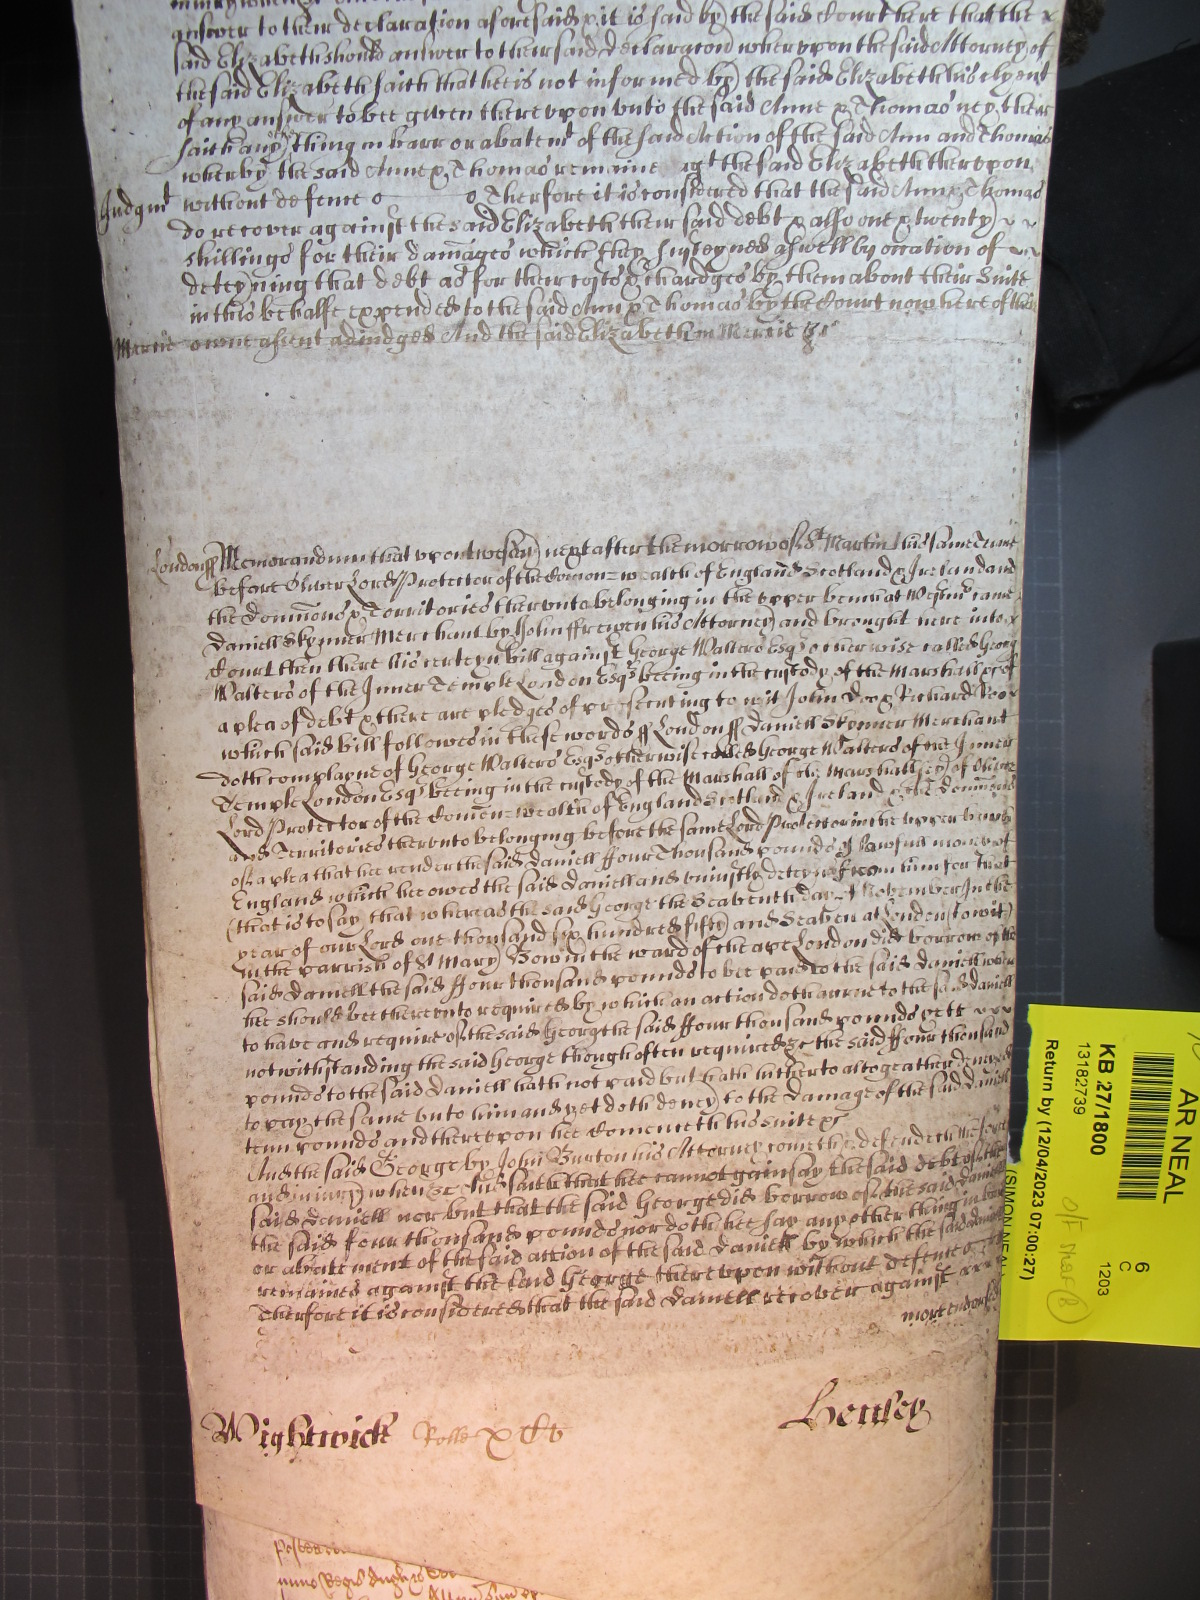 answer to their declaration aforesaid & it is said by the said Court here that the
said Elizabeth should answer to their said declaracon wherupon the said Attorney of
the said Elizabeth saith that he is not informed by the said Elizabeth his clyent
of any answer to bee given thereupon unto the said Anne & Thomas ney there
saith any other thing in barr or abatemt of the said Action of the said Ann and Thomas
wherby the said Anne & Thomas remaine agt the said Elizabeth therupon
Judgmt without defence Therfore it is considered that the said Ann & Thomas
do recover against the said Elizabeth their said debt & also one & twenty
shillings for their damages which they susteyned aswell by occation of
deteyning that debt as for their costs & chardges by them about their Suite
in this behalfe expended to the said Ann & Thomas by the Court now here of their
Mercie owne assent adiudged And the said Elizabeth in Mercie &c
London ss Memorandum that upon twesday next after the morrow of St Martin this same Terme
before Oliver Lord Protector of the Comon=wealth of England Scotland & Ireland and
the Dominions & Territories therunto belonging in the upper bench at Westmr came
Daniell Skynner Merchant by John Frewen his Attorney and brought here into
Court then there his certeyn bill against George Walters Esqr otherwise called George
Walters of the Inner Temple London Esqr beeing in the custody of the Marshall &c of
a plea of debt & there are pledges of prosecuting to wit John Doe & Richard Roe
which said bill followes in these words ss London ss Daniell Skynner Merchant
doth complayne of George Walters Esqr otherwise called George Walters of the Inner
Temple London Esqr beeing in the custody of the Marshall of the Marshallsey of Oliver
Lord Protector of the Comon=wealth of England Scotland & Ireland & the Dominions
and Territories therunto belonging before the same Lord Protector in the upper bench
of a plea that hee render the said Daniell ffour Thousand pounds of lawfull money of
England which hee owes the said Daniell and uniustly deteynes from him for that
(that is to say) that wheras the said George the Seaventh day of November In the
year of our Lord one thousand six hundred fifty and Seaven at London (to wit)
in the parrish of St Mary Bow in the ward of cheape London did borrow of the
said Daniell the said ffour thousand pounds to bee paid to the said Daniell when
hee should bee thereunto required by which an action doth accrue to the said Daniell
to have and require of the said George the said ffour thousand pounds yett
notwithstanding the said George though often required &c the said ffour thousand
pounds to the said Daniell hath not paid but hath hitherto altogeather denyed
to pay the same unto him and yet doth deney to the damage of the said Daniell
tenn pounds and therupon hee Comenceth his suite &c
And the said George by John Burton his Attorney cometh & defendeth the force
and iniury when &c And saith that hee cannot gainsay the said debt of the
said Daniell nor but that the said George did borrow of the said Daniell
the said ffour thousand pounds nor doth hee say any other thing in barr
or abatement of the said action of the said Daniell by which the said Daniell
remaines against the said George thereupon without defence
Therfore it is considered that the said Daniell recover against
more endorsed
Wightwick Rolle Henley
anno Regis
AR NEAL
6
C
1203
KB 27/1800
13182739
Return by (12/04/2023 07:00:27)
(SIMON NEAL)